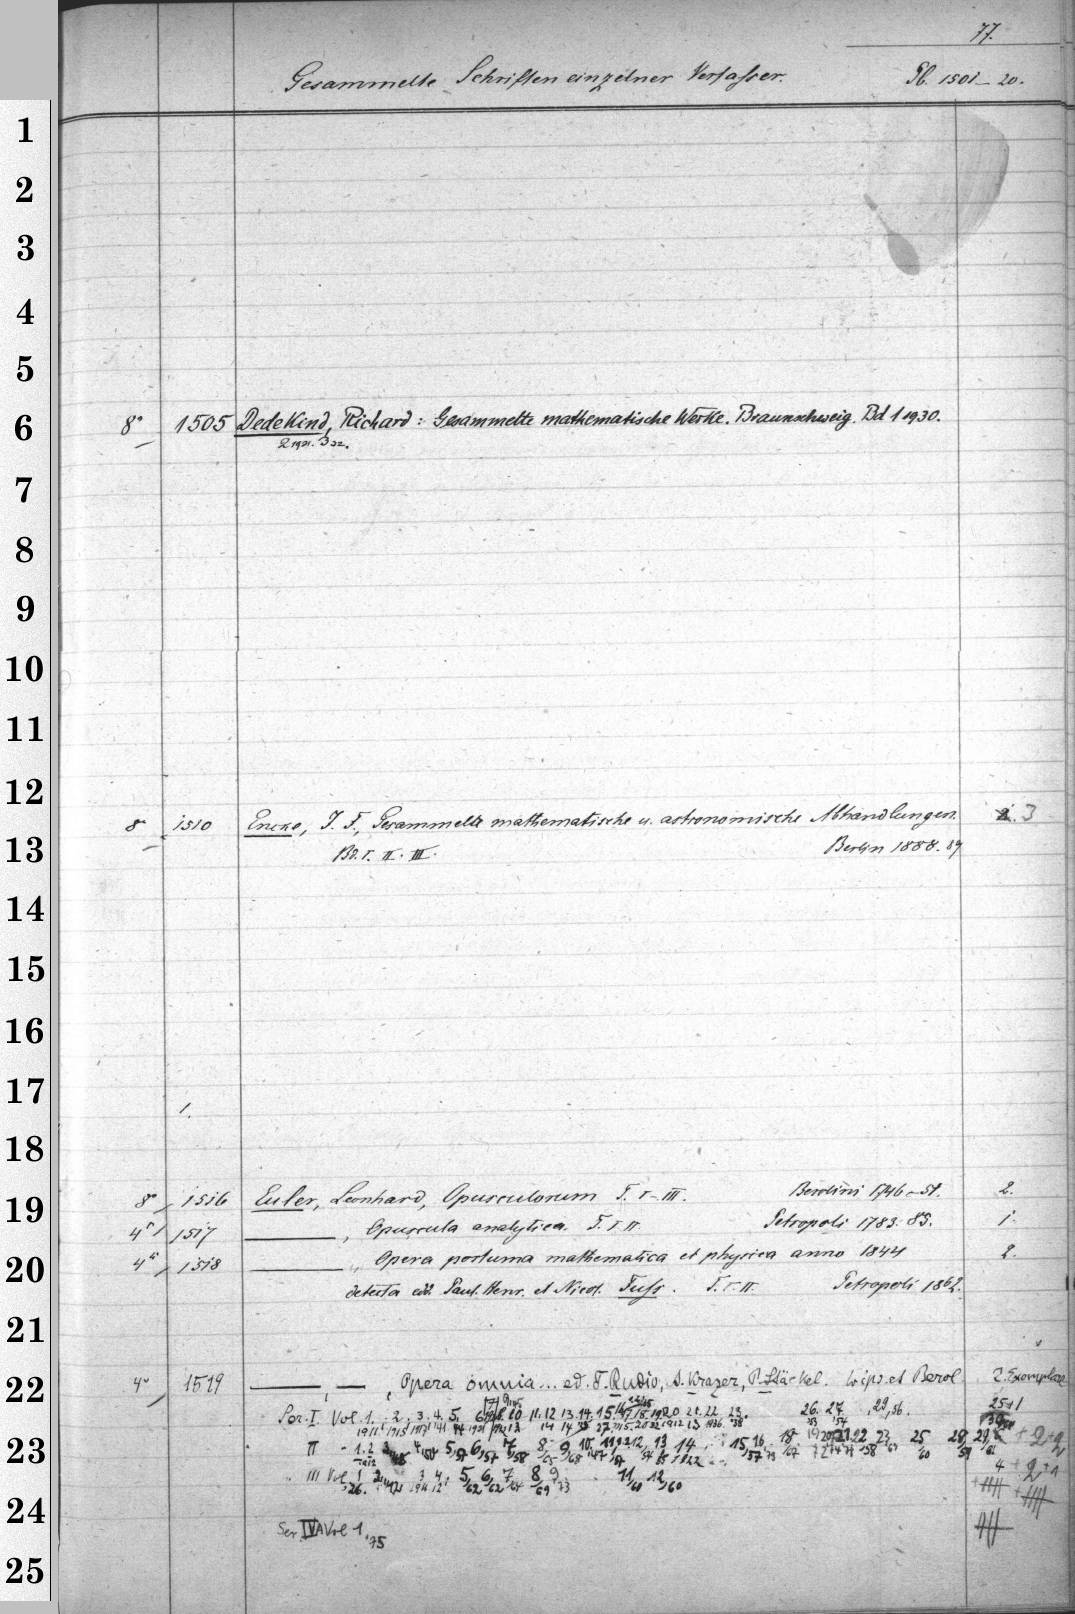 77.
Gesammelte Schriften einzelner Verfasser. Pb. 1501-20.
1
2
3
4
5
6 8° 1505 Dedekind, Richard: Gesammelte mathematische Werke. Braunschweig. Bd 1 1930.
2 1931. 3 32.
7
8
9
10
11
12
8° 1510 Encke, J. F., Gesammelte mathematische u. astronomische Abhandlungen. 3
13 Bd. I. II. III. Berlin 1888. 89
14
15
16
17 1.
18
19 8° 1516 Euler, Leonhard, Opusculorum T. I-III. Berolini 1746-51. 2.
4° 1517 , Opuscula analytica. T. I. II. Petropoli 1783. 85. 1.
20 4° 1518 Opera postuma mathematica et physica anno 1844 2.
detecta edd. Paul. Henr. et Nicol. Fuss. T. I. II. Petropoli 1862.
21
22 4° 1519 , Opera omnia... ed. F. Rudio, A. Krazer, P. Stäckel. Lips. et Berol. 2. Exemplare
Ser. I. Vol. 1. 2. 3. 4. 5. 11. 12 13. 14. 15. 20 21. 22 23. 26. 27. 29, 56. 25+1
23 II - 1. 2 5, 6, 7, 8. 9, 10. 12, 13 14 15, 16, 18 22 23 25 28, 29,
III Vol. 1 2 3 4. 5, 6, 7, 8, 9, 11, 12, 4 + 2+1
24
Ser. IV A Vol 1, 75
25